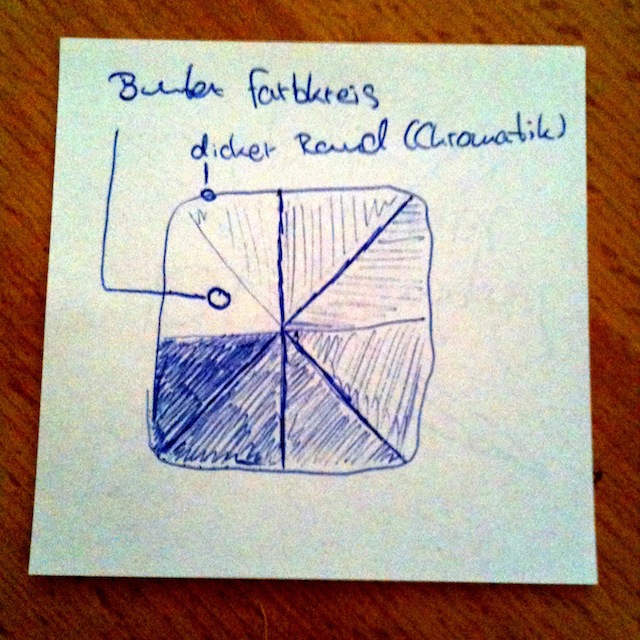 Bunter Farbkreis
dicker Rand (Chromatik)